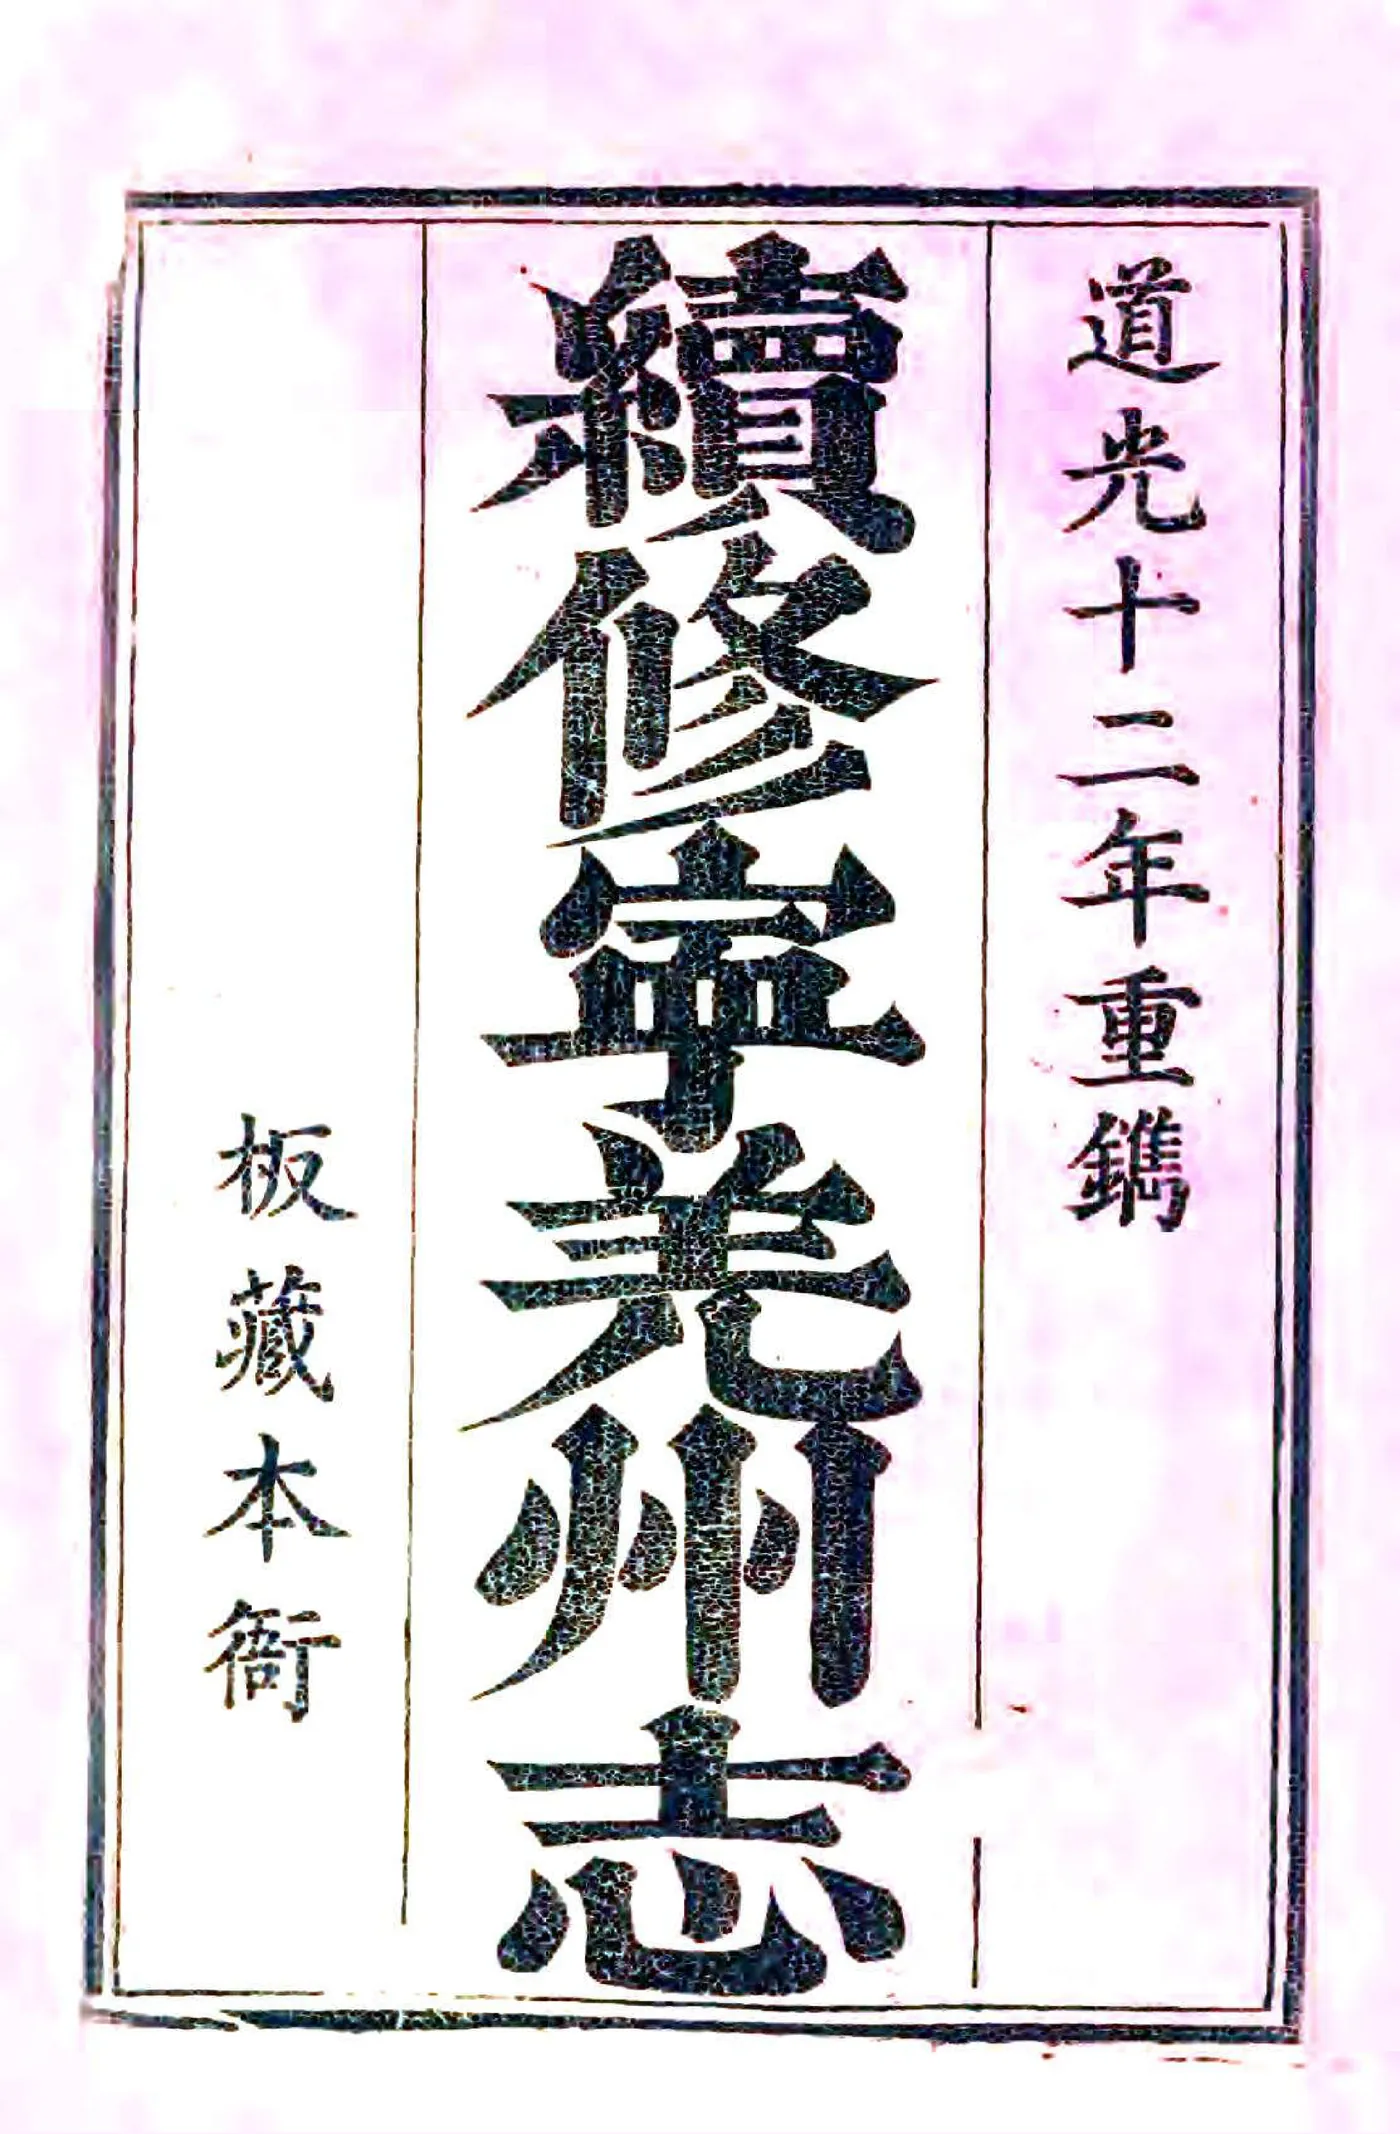 道光十二年重鐫
續修寕羌州志
板藏本衙